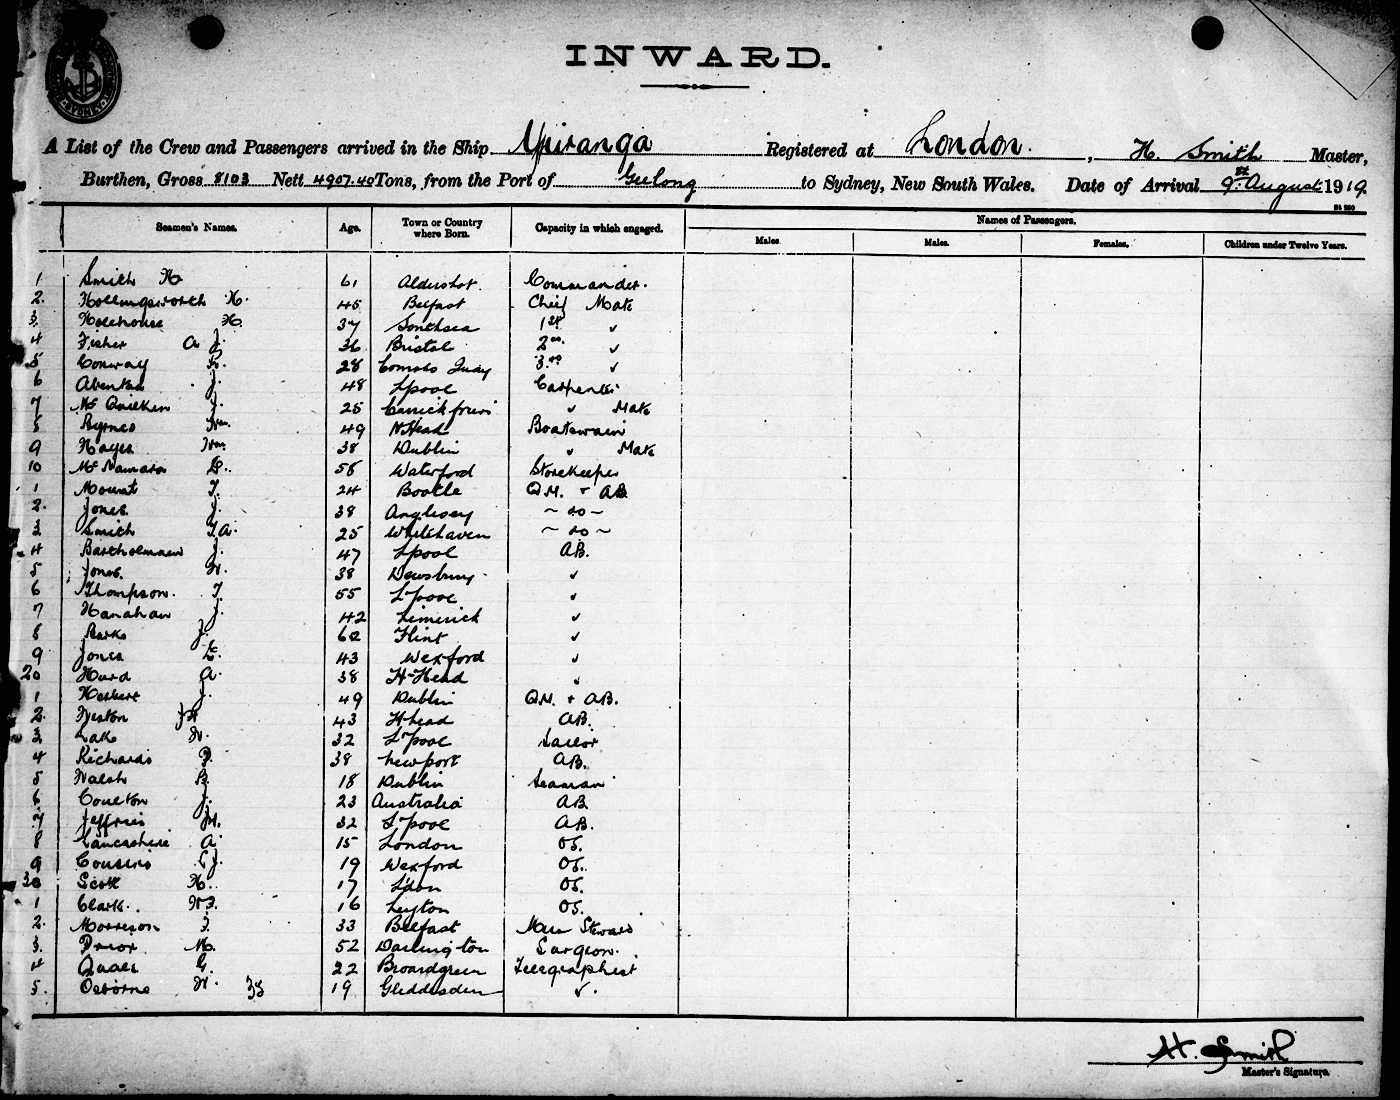 SYDNEY
INWARD.
A List of the Crew and Passengers arrived in the Ship Ypiranga Registered at London, H. Smith Master,
Burthen, Gross 8103 Nett 4907.40 Tons, from the Port of Geelong to Sydney, New South Wales. Date of Arrival 9 August 1919.
Seamen's Names. Age. Town or Country where Born. Capacity in which engaged. Names of Passengers.
Males. Males. Females. Children under Twelve Years.
1 Smith H 61 Aldershot. Commander.
2. Hollingsworth H. 45 Belfast Chief Mate
3. Holehouse H. 37 Southsea 1st ✓
4 Fisher A J. 36 Bristol 2nd ✓
5 Conway 28 Quay 3rd ✓
6 J. 48 Lpool Carpenter
7 J. 25 ✓ Mate
8 Byrnes Wm. 49 Boatswain
9 Hayes Wm. 38 Dublin ✓ Mate
10 McNamara 58 Waterford Storekeeper
1 Mount T. 24 Bootle Q.M. + AB
2. Jones J. 38 Anglesey ~ do ~
3. Smith T.A. 25 Whitehaven ~ do ~
4 Bartholomew J. 47 Lpool AB.
5 Jones. W. 38 Dewsbury ✓
6 Thompson. T 55 L'pool ✓
7 Hanahan J. 42 Limerick ✓
8 J. 62 Flint ✓
9 Jones E. 43 Wexford ✓
20 Hurd A. 38 H-Head ✓
1 Herbert J. 49 Dublin Q.M. + AB.
2. Weston JH 43 Hhead AB.
3 Lake W. 32 L'pool Sailor
4 Richards 38 Newport AB.
5 Walsh B. 18 Dublin Seaman
6 Coulton J. 23 Australia AB
7 Jeffries W. 32 L'pool AB.
8 Lancashire A 15 London OS.
9 Cousins C J. 19 Wexford OS.
30 Scott H. 17 L'don OS.
1 Clark. 16 Leyton OS.
2. Morrison J. 33 Belfast Steward
3. Prior M. 52 Darlington Surgeon.
4 G. 22 Broardgreen Telegraphist
5. Osborne W. 35 19 Gleddesden ✓.
H. Smith
Master's Signature.